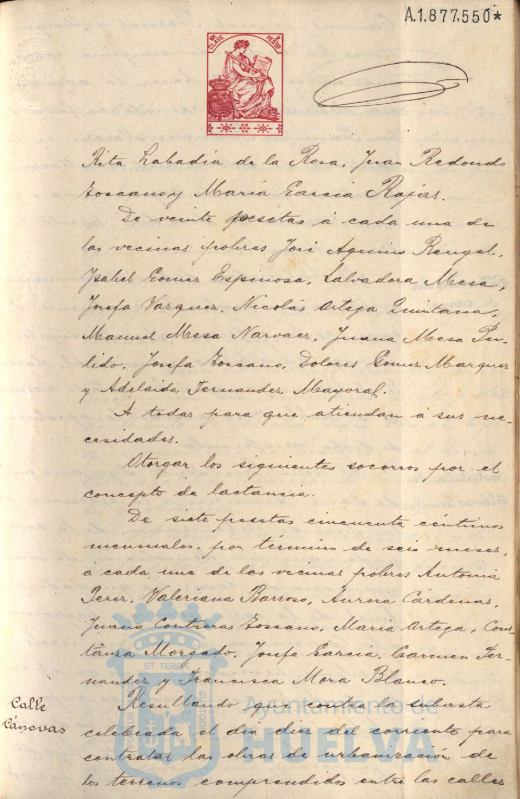 A.1.877.550*
CLASE
Rita Labadia de la Rosa, Juan Redondo
Toscano y Maria Garcia Rojas.
De veinte pesetas á cada una de
las vecinas pobres José Aquino Rengel,
Isabel Gomez Espinosa, Salvadora Mesa,
Josefa Vazquez, Nicolás Ortega Quintana,
Manuel Mesa Narvaez, Juana Mesa Pu-
lido, Josefa Toscano, Dolores Gomez Marquez
y Adelaida Fernandez Mayoral.
A todas para que atiendan á sus ne-
cesidades.
Otorgar los siguientes socorros por el
concepto de lactancia.
De siete pesetas cincuenta céntimos
mensuales, por término de seis meses,
á cada una de las vecinas pobres Antonia
Perez, Valeriana Barroso, Aurora Cárdenas,
Juana Contreras Toscano, Maria Ortega, Cons-
tanza Morgado, Josefa Garcia, Carmen Fer-
nandez y Francisca Mora Blanco.
Calle
Cánovas
Resultando que contra la subasta
celebrada el dia diez del corriente para
contratar las obras de urbanización de
los terrenos comprendidos entre las calles
ET TERRAE
Ayuntamiento de
HUELVA